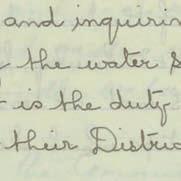 and inquirin
the water s
is the duty
their Distric